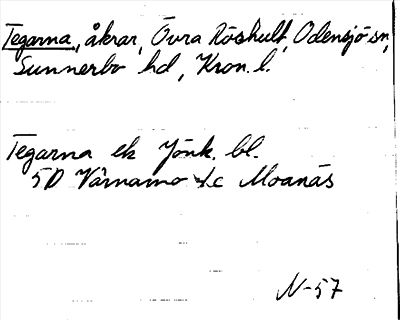 Tegarna, åkrar, Övra Röshult, Odensjö sn,
Sunnerbo hd, Kron. l.
Tegarna ek Jönk. bl.
5D Värnamo 4c Moanäs
N-57